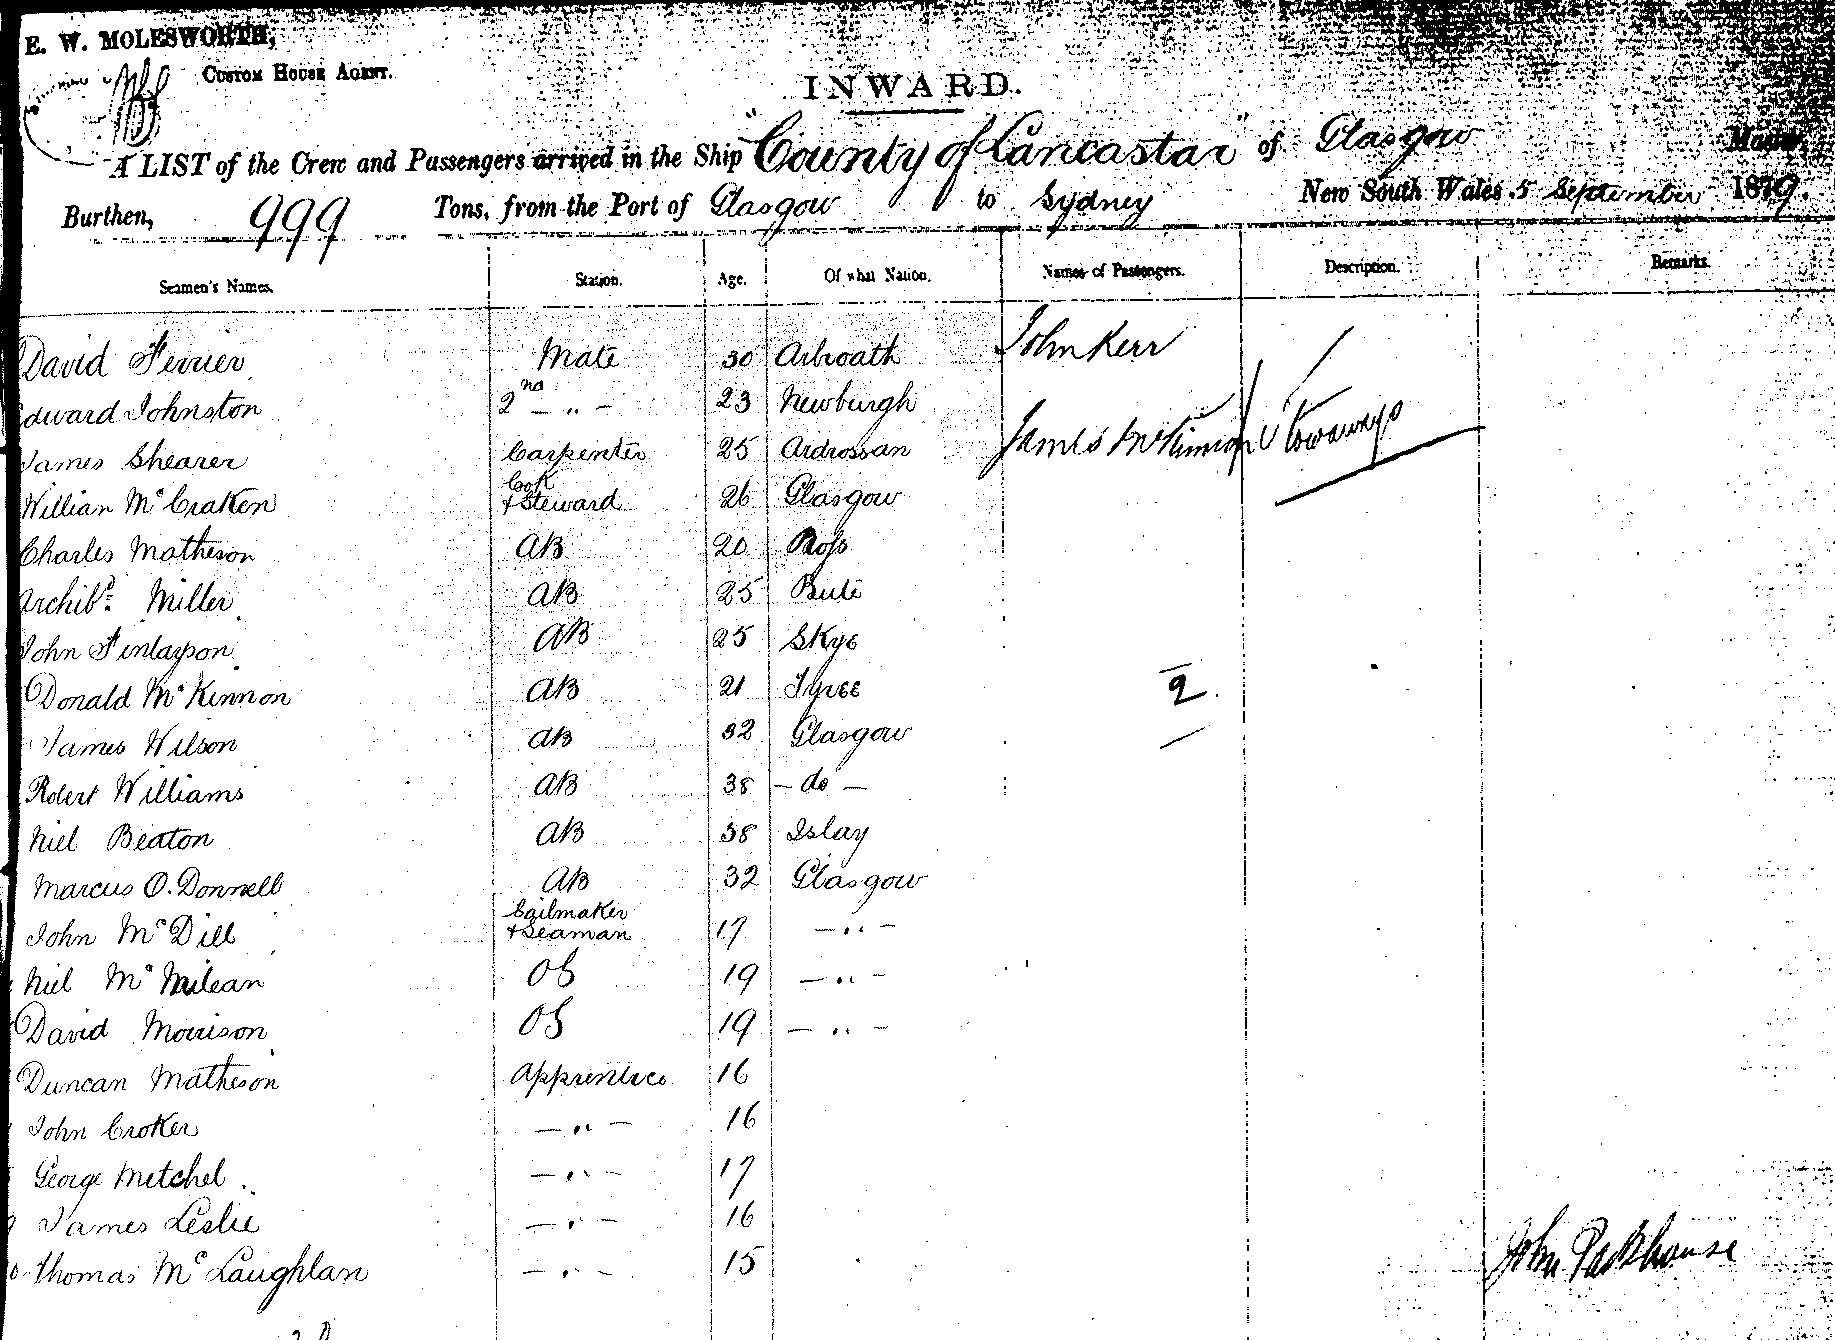 E. W. MOLESWORTH,
CUSTOM HOUSE AGENT.
INWARD.
A LIST of the Crew and Passengers arrived in the Ship "County of Lancastar" of Glasgow
Burthen, 999 Tons, from the Port of Glasgow to Sydney New South Wales 5 September 1879.
Seamen's Names. Station. Age. Of what Nation. Names of Passengers. Description. Remarks.
David Ferrier Mate 30 Arbroath John Kerr
Edward Johnston 2nd — „ — 23 Newburgh
James Shearer Carpenter 25 Ardrossan James McKinnon Stowaways
Willian Mc Craken Cook & Steward 26 Glasgow
Charles Matheson AB 20 Ross
Archibd. Miller AB 25 Bute
John Finlayson AB 25 Skye
Donald Mc Kinnon AB 21 Tyree 2.
James Wilson AB 32 Glasgow
Robert Williams AB 38 — do —
Niel Beaton AB 38 Islay
Marcus O. Donnell AB 32 Glasgow
John Mc Dill Sailmaker & Seaman 17 — „ —
Niel Mc Milean OS 19 — „ —
David Morrison OS 19 — „ —
Duncan Matheson Apprentice 16
John Croker — „ — 16
George Metchel — „ — 17
James Leslie — „ — 16
Thomas Mc Laughlan — „ — 15
John Parkhouse